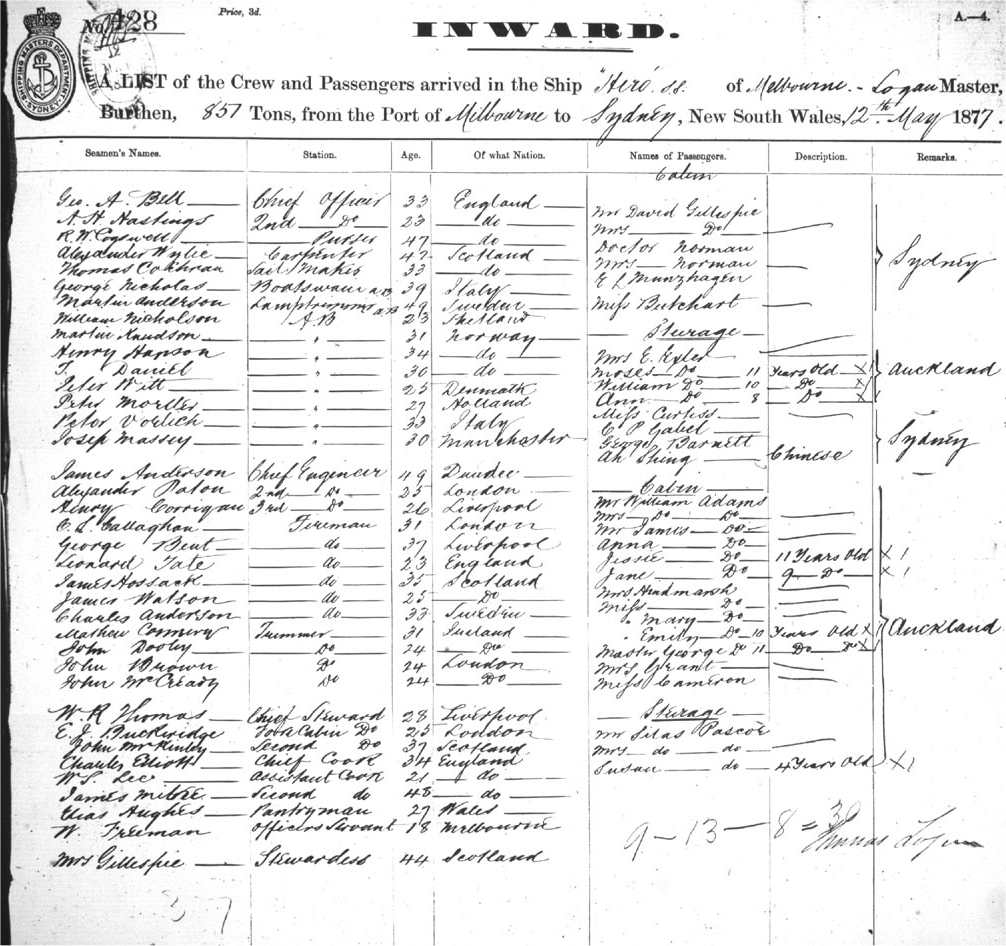 Price, 3d.
No. 128
A.—4.
INWARD.
SHIPPING MASTERS DEPARTMENT SYDNEY
A LIST of the Crew and Passengers arrived in the Ship "Hero" s.s. of Melbourne. - Logan Master,
Burthen, 851 Tons, from the Port of Melbourne to Sydney, New South Wales, 12th May 1877.
Seamen's Names. Station. Age. Of what Nation. Names of Passengers. Description. Remarks.
Cabin
Geo. A. Bell Chief Officer 33 England
Mr David Gillespie
A H Hastings 2nd Do 23 do
Mrs Do
R. W. Cogswell Purser 47 do
Doctor Norman
Alexander Wylie Carpenter 42 Scotland
Mrs Norman Sydney
Thomas Cockhran Sail Maker 33 do
E L Munzhagen
George Nicholas Boatswain AB 39 Italy
Martin Anderson Lamptrimmer AB 49 Sweden
Miss Butchart
William Nicholson AB 23 Shetland
Sterage
Martin Knudson " 31 Norway
Henry Hanson " 34 do
Mrs E. Eyler
T. Daniel " 30 do
Moses Do 11 Years Old X 1 Auckland
Peter Witt " 25 Denmark
William Do 10 Do X 1
Peter Morller " 27 Holland
Ann Do 8 Do X 1
Peter Vorlich " 33 Italy
Miss Curtiss
C P Gabel
Josep Massey " 30 Manchester
George Barnett Sydney
Ah Shing Chinese
James Anderson Chief Engeneer 49 Dundee
Cabin
Alexander Paton 2nd Do 25 London
Mr William Adams
Henry Corrigan 3rd Do 26 Liverpool
Mrs Do Do
C. S. Callaghan Fireman 31 London
Mr James Do
George Bent do 37 Liverpool
Anna Do
Leonard Tate do 23 England
Jessie Do 11 Years Old X 1
James Hossack do 35 Scotland
Jane Do 9 Do X 1
James Watson do 25 Do
Mrs Hindmarsh
Charles Anderson do 33 Sweden
Miss Do
" Mary Do
Mathew Connery Trimmer 31 Ireland
" Emily Do 10 Years Old X 1 Auckland
John Dooley Do 24 Do
Master George Do 11 Do Do X 1
John Brown Do 24 London
Mrs Grant
John McCready Do 24 Do
Miss Cameron
W. R Thomas Chief Steward 28 Liverpool
Sterage
E. J. Puckridge Fore Cabin Do 25 London
Mr Silas Pascoe
John McKinley Second Do 37 Scotland
Mrs do do
Charles Elliott Chief Cook 34 England
Susan do 4 Years Old X 1
W S. Lee Assistant Cook 21 do
James Second do 48 do
Elias Hughes Pantryman 27 Wales
W. Freeman Officers Servant 18 Melbourne
9 - 13 - 8 = 30
Thomas Logan
Mrs Gillespie Stewardess 44 Scotland
37